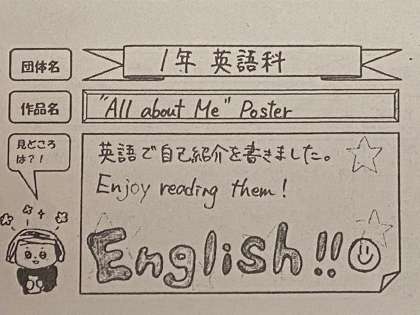 団体名
1年 英語科
作品名
"All about Me" Poster
見どころ
は?!
英語で自己紹介を書きました。
Enjoy reading them!
English!!